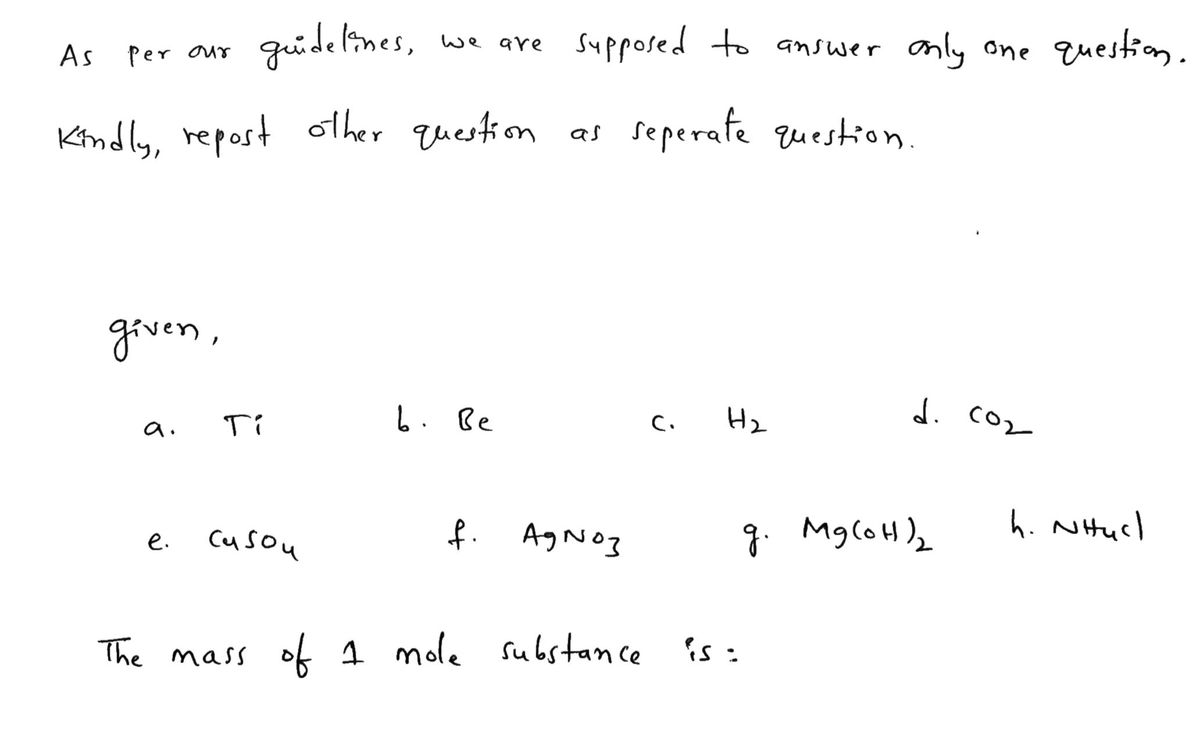 As per our guidelines, we are supposed to answer only one question.
Kindly, repost other question as seperate question.
given,
a. Ti b. Be c. H2 d. CO2
e. CuSO4 f. AgNO3 g. Mg(OH)2 h. NH4Cl
The mass of 1 mole substance is :